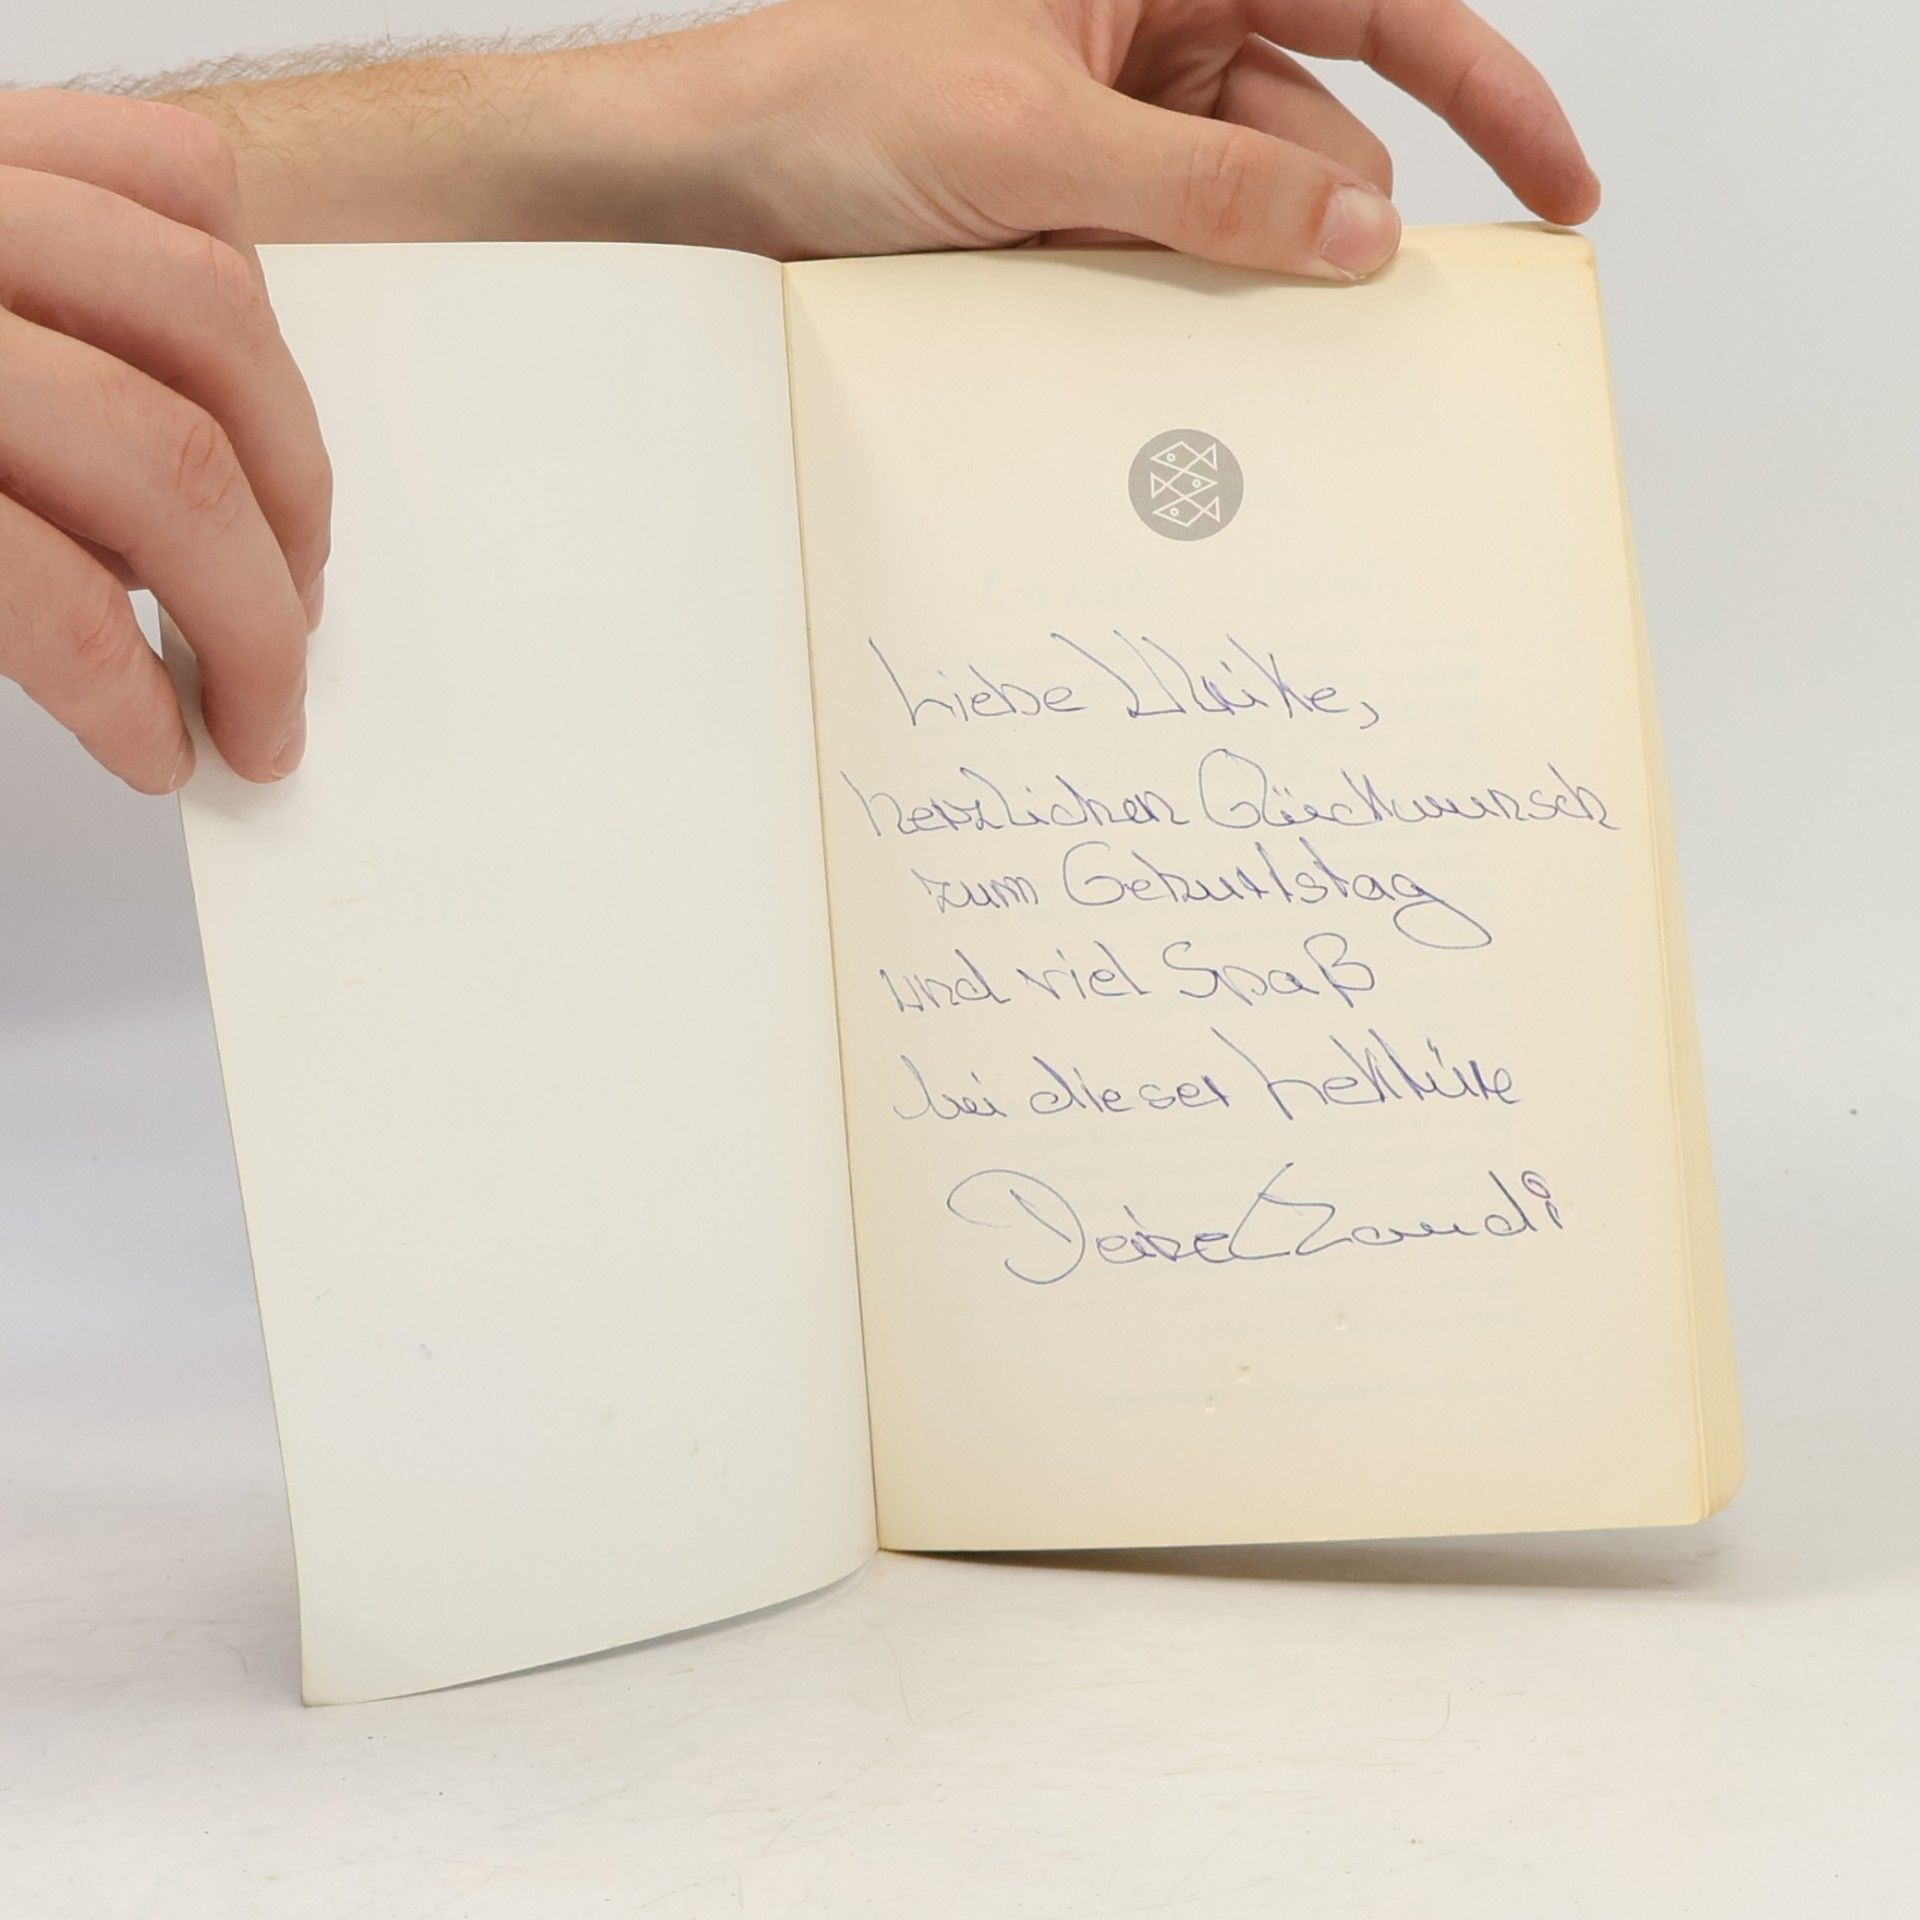 Liebe Ulrike,
herzlichen Glückwunsch
zum Geburtstag
und viel Spaß
bei dieser Lektüre
Deine